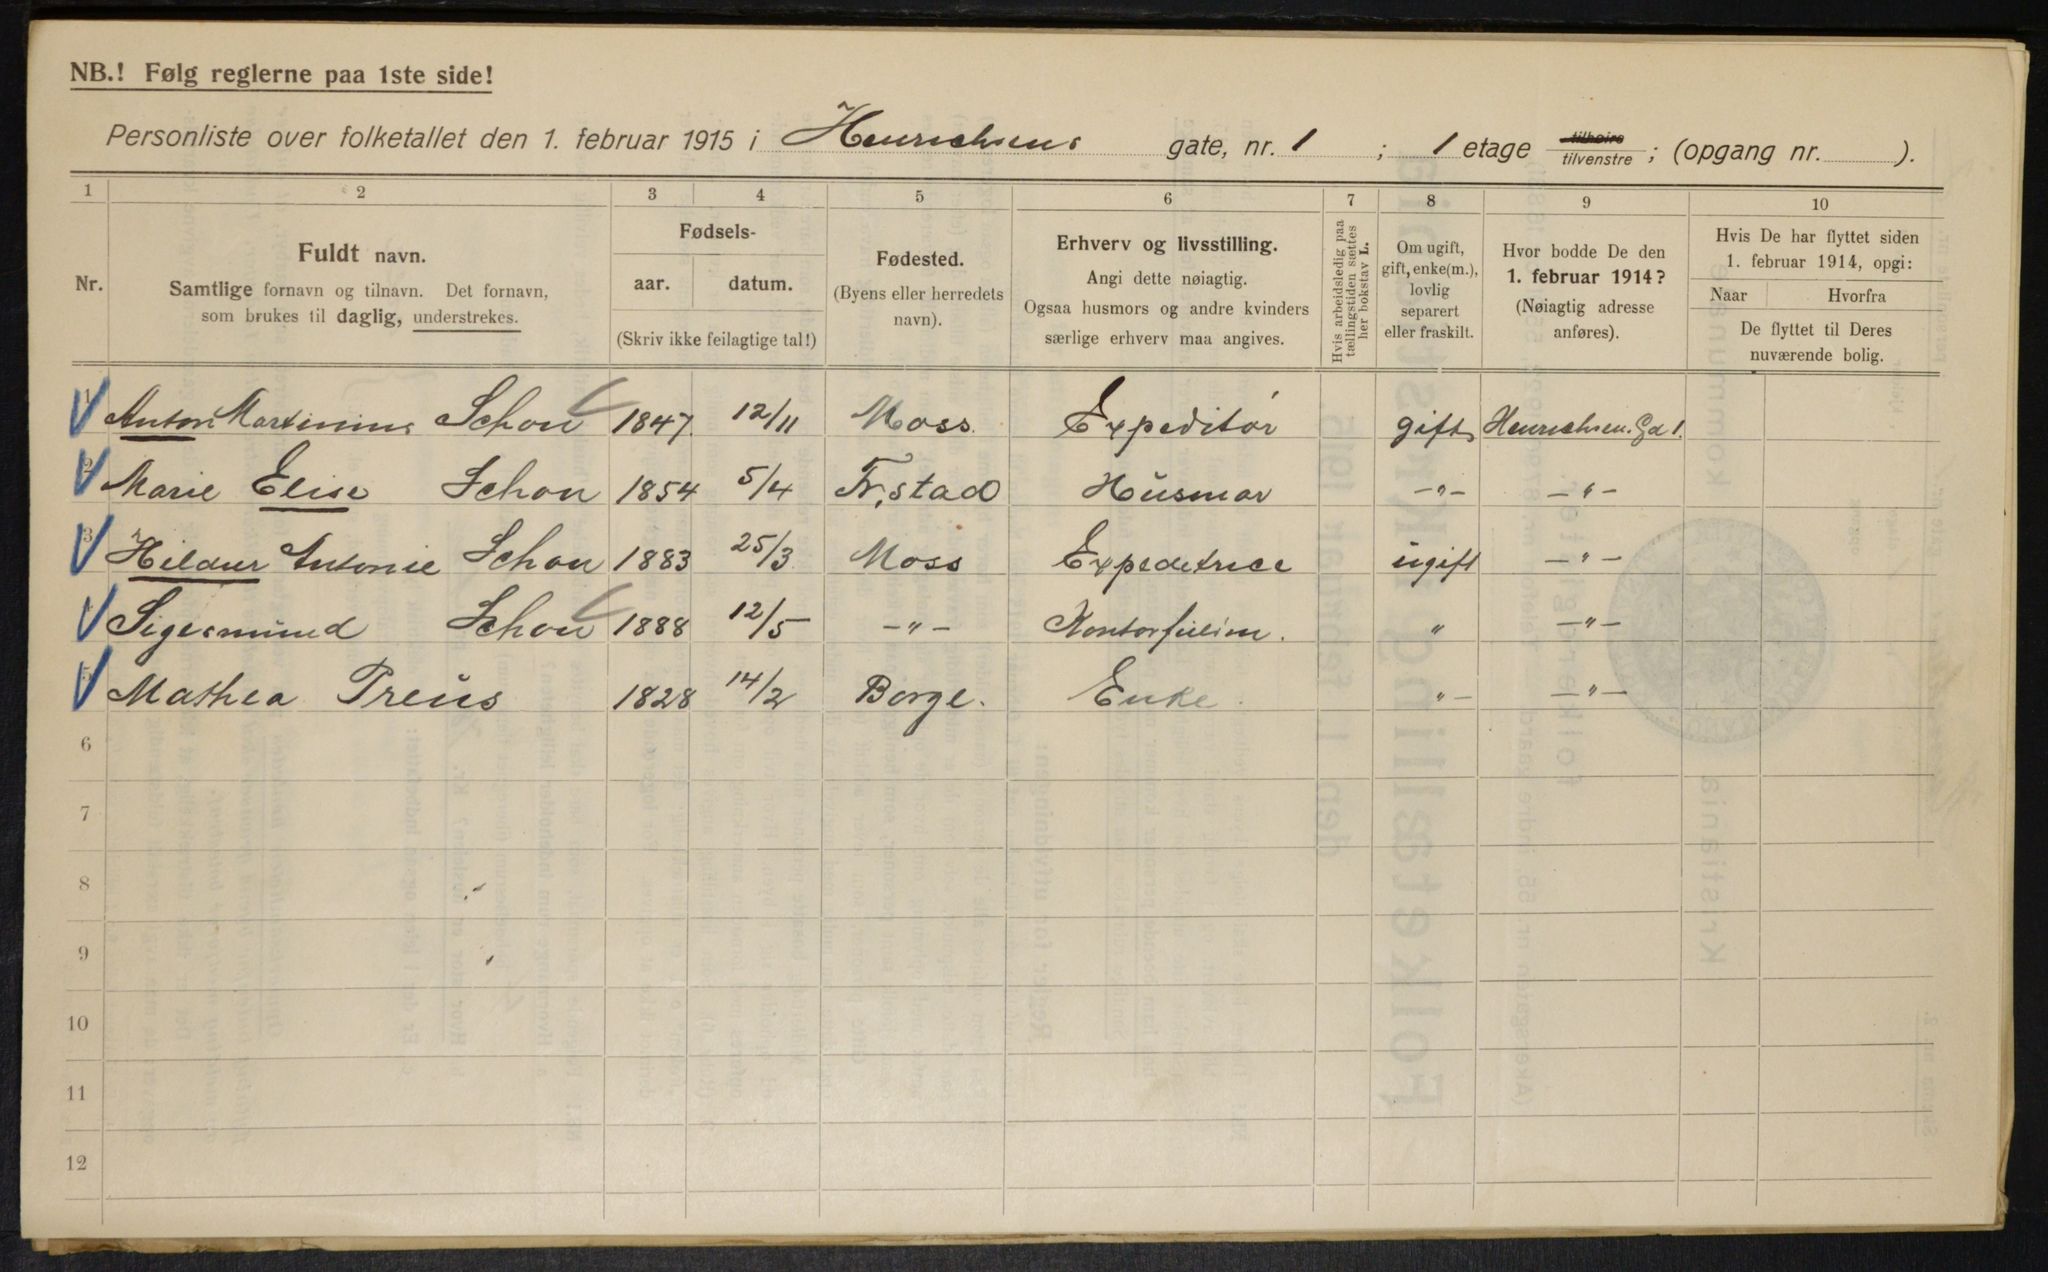 NB.! Følg reglerne paa 1ste side!
Personliste over folketallet den 1. februar 1915 i Henrichsens gate, nr. 1 ; 1 etage tilhøire tilvenstre ; (opgang nr. ).
1 2 3 4 5 6 7 8 9 10
Nr.
Fuldt navn.
Samtlige fornavn og tilnavn. Det fornavn,
som brukes til daglig, understrekes.
Fødsels-
aar. datum.
(Skriv ikke feilagtige tal!)
Fødested.
(Byens eller herredets
navn).
Erhverv og livsstilling.
Angi dette nøiagtig.
Ogsaa husmors og andre kvinders
særlige erhverv maa angives.
Hvis arbeidsledig paa
tællingstiden sættes
her bokstav L.
Om ugift,
gift, enke(m.),
lovlig
separert
eller fraskilt.
Hvor bodde De den
1. februar 1914?
(Nøiagtig adresse
anføres).
Hvis De har flyttet siden
1. februar 1914, opgi:
Naar Hvorfra
De flyttet til Deres
nuværende bolig.
1 Anton Martinius Schou 1847. 12/11 Moss Expeditør gift Henrichsen. Gd 1.
2 Marie Elise Schou 1854 5/4 Fr.stad Husmor -"- -"-
3 Hildur Antonie Schou 1883 25/3 Moss Expeditrice ugift -"-
4 Sigesmund Schou 1888 12/5 -"- " -"-
5 Mathea Preus 1828 14/2 Borge. Enke "- -"-
6
7
8
9
10
11
12